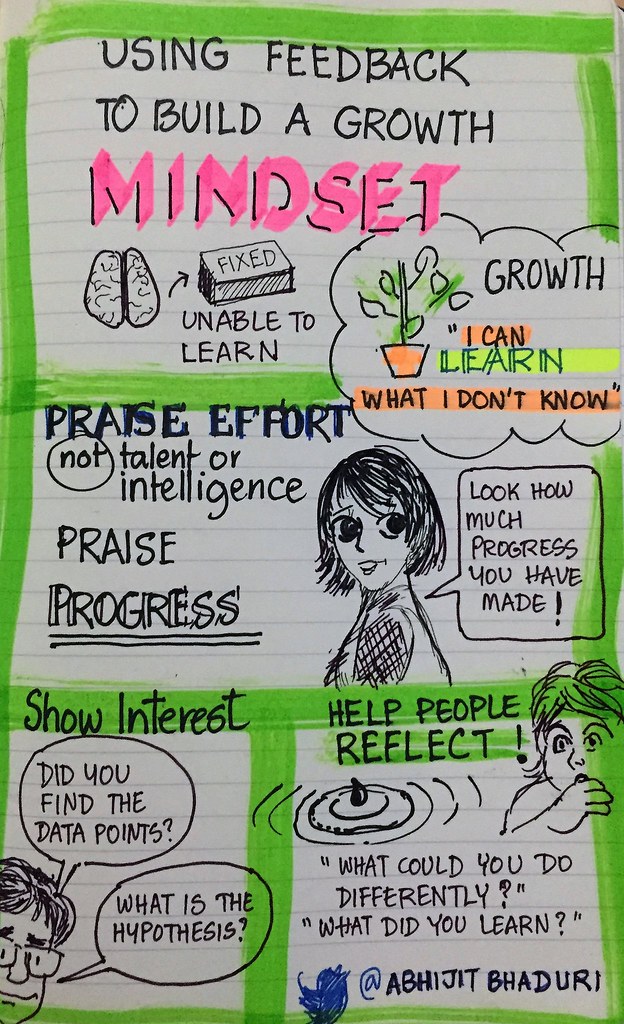 USING FEEDBACK
TO BUILD A GROWTH
MINDSET
FIXED
UNABLE TO
LEARN
GROWTH
"I CAN
LEARN
WHAT I DON'T KNOW"
PRAISE EFFORT
not talent or
intelligence
PRAISE
PROGRESS
LOOK HOW
MUCH
PROGRESS
YOU HAVE
MADE!
Show Interest
DID YOU
FIND THE
DATA POINTS?
WHAT IS THE
HYPOTHESIS?
HELP PEOPLE
REFLECT!
"WHAT COULD YOU DO
DIFFERENTLY?"
"WHAT DID YOU LEARN?"
@ABHIJITBHADURI